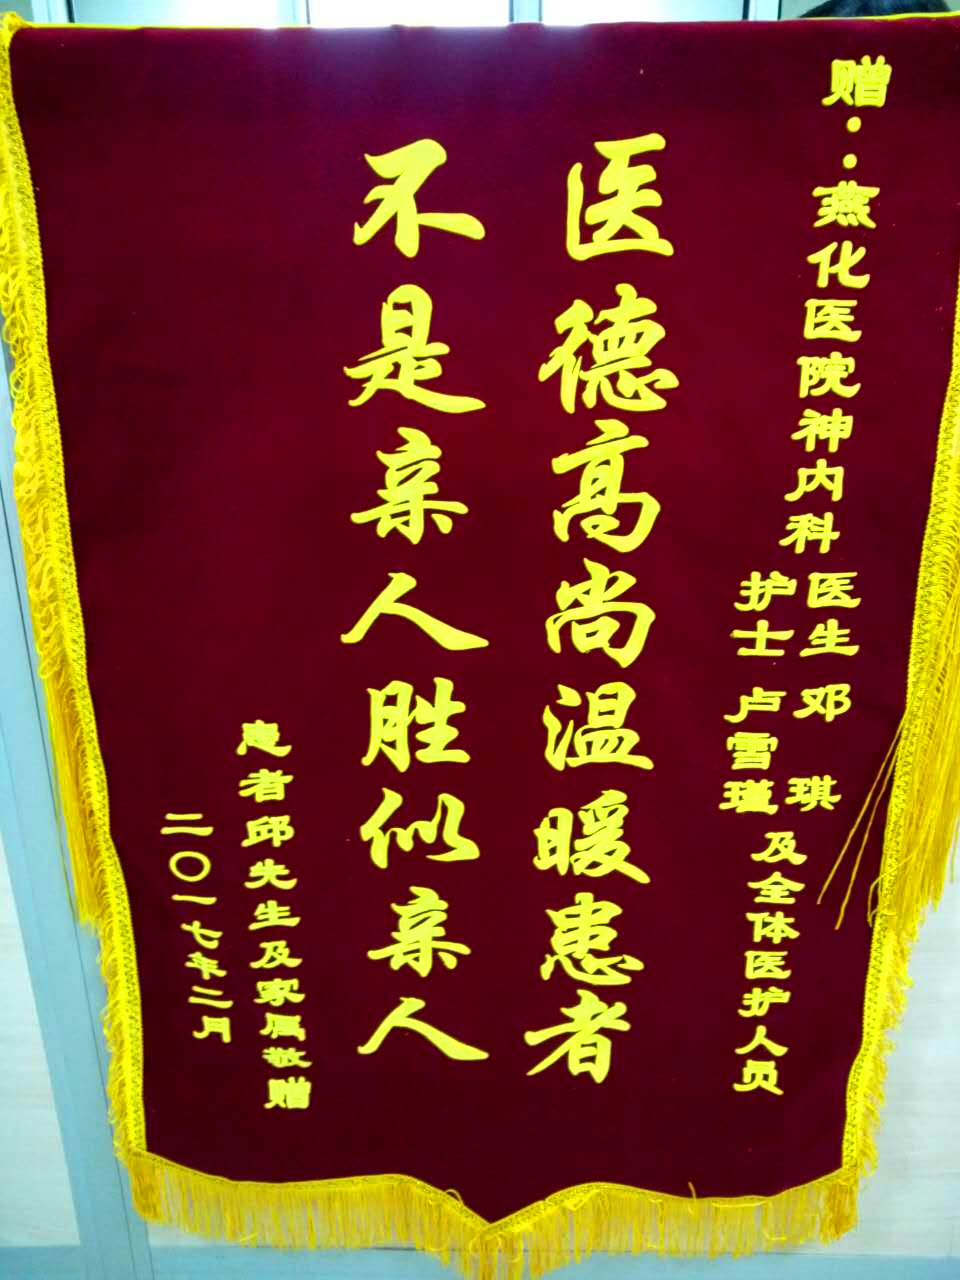 赠：燕化医院神内科
医生 邓琪
护士 卢雪瑾
及全体医护人员
医德高尚温暖患者
不是亲人胜似亲人
患者邱先生及家属敬赠
二〇一七年二月